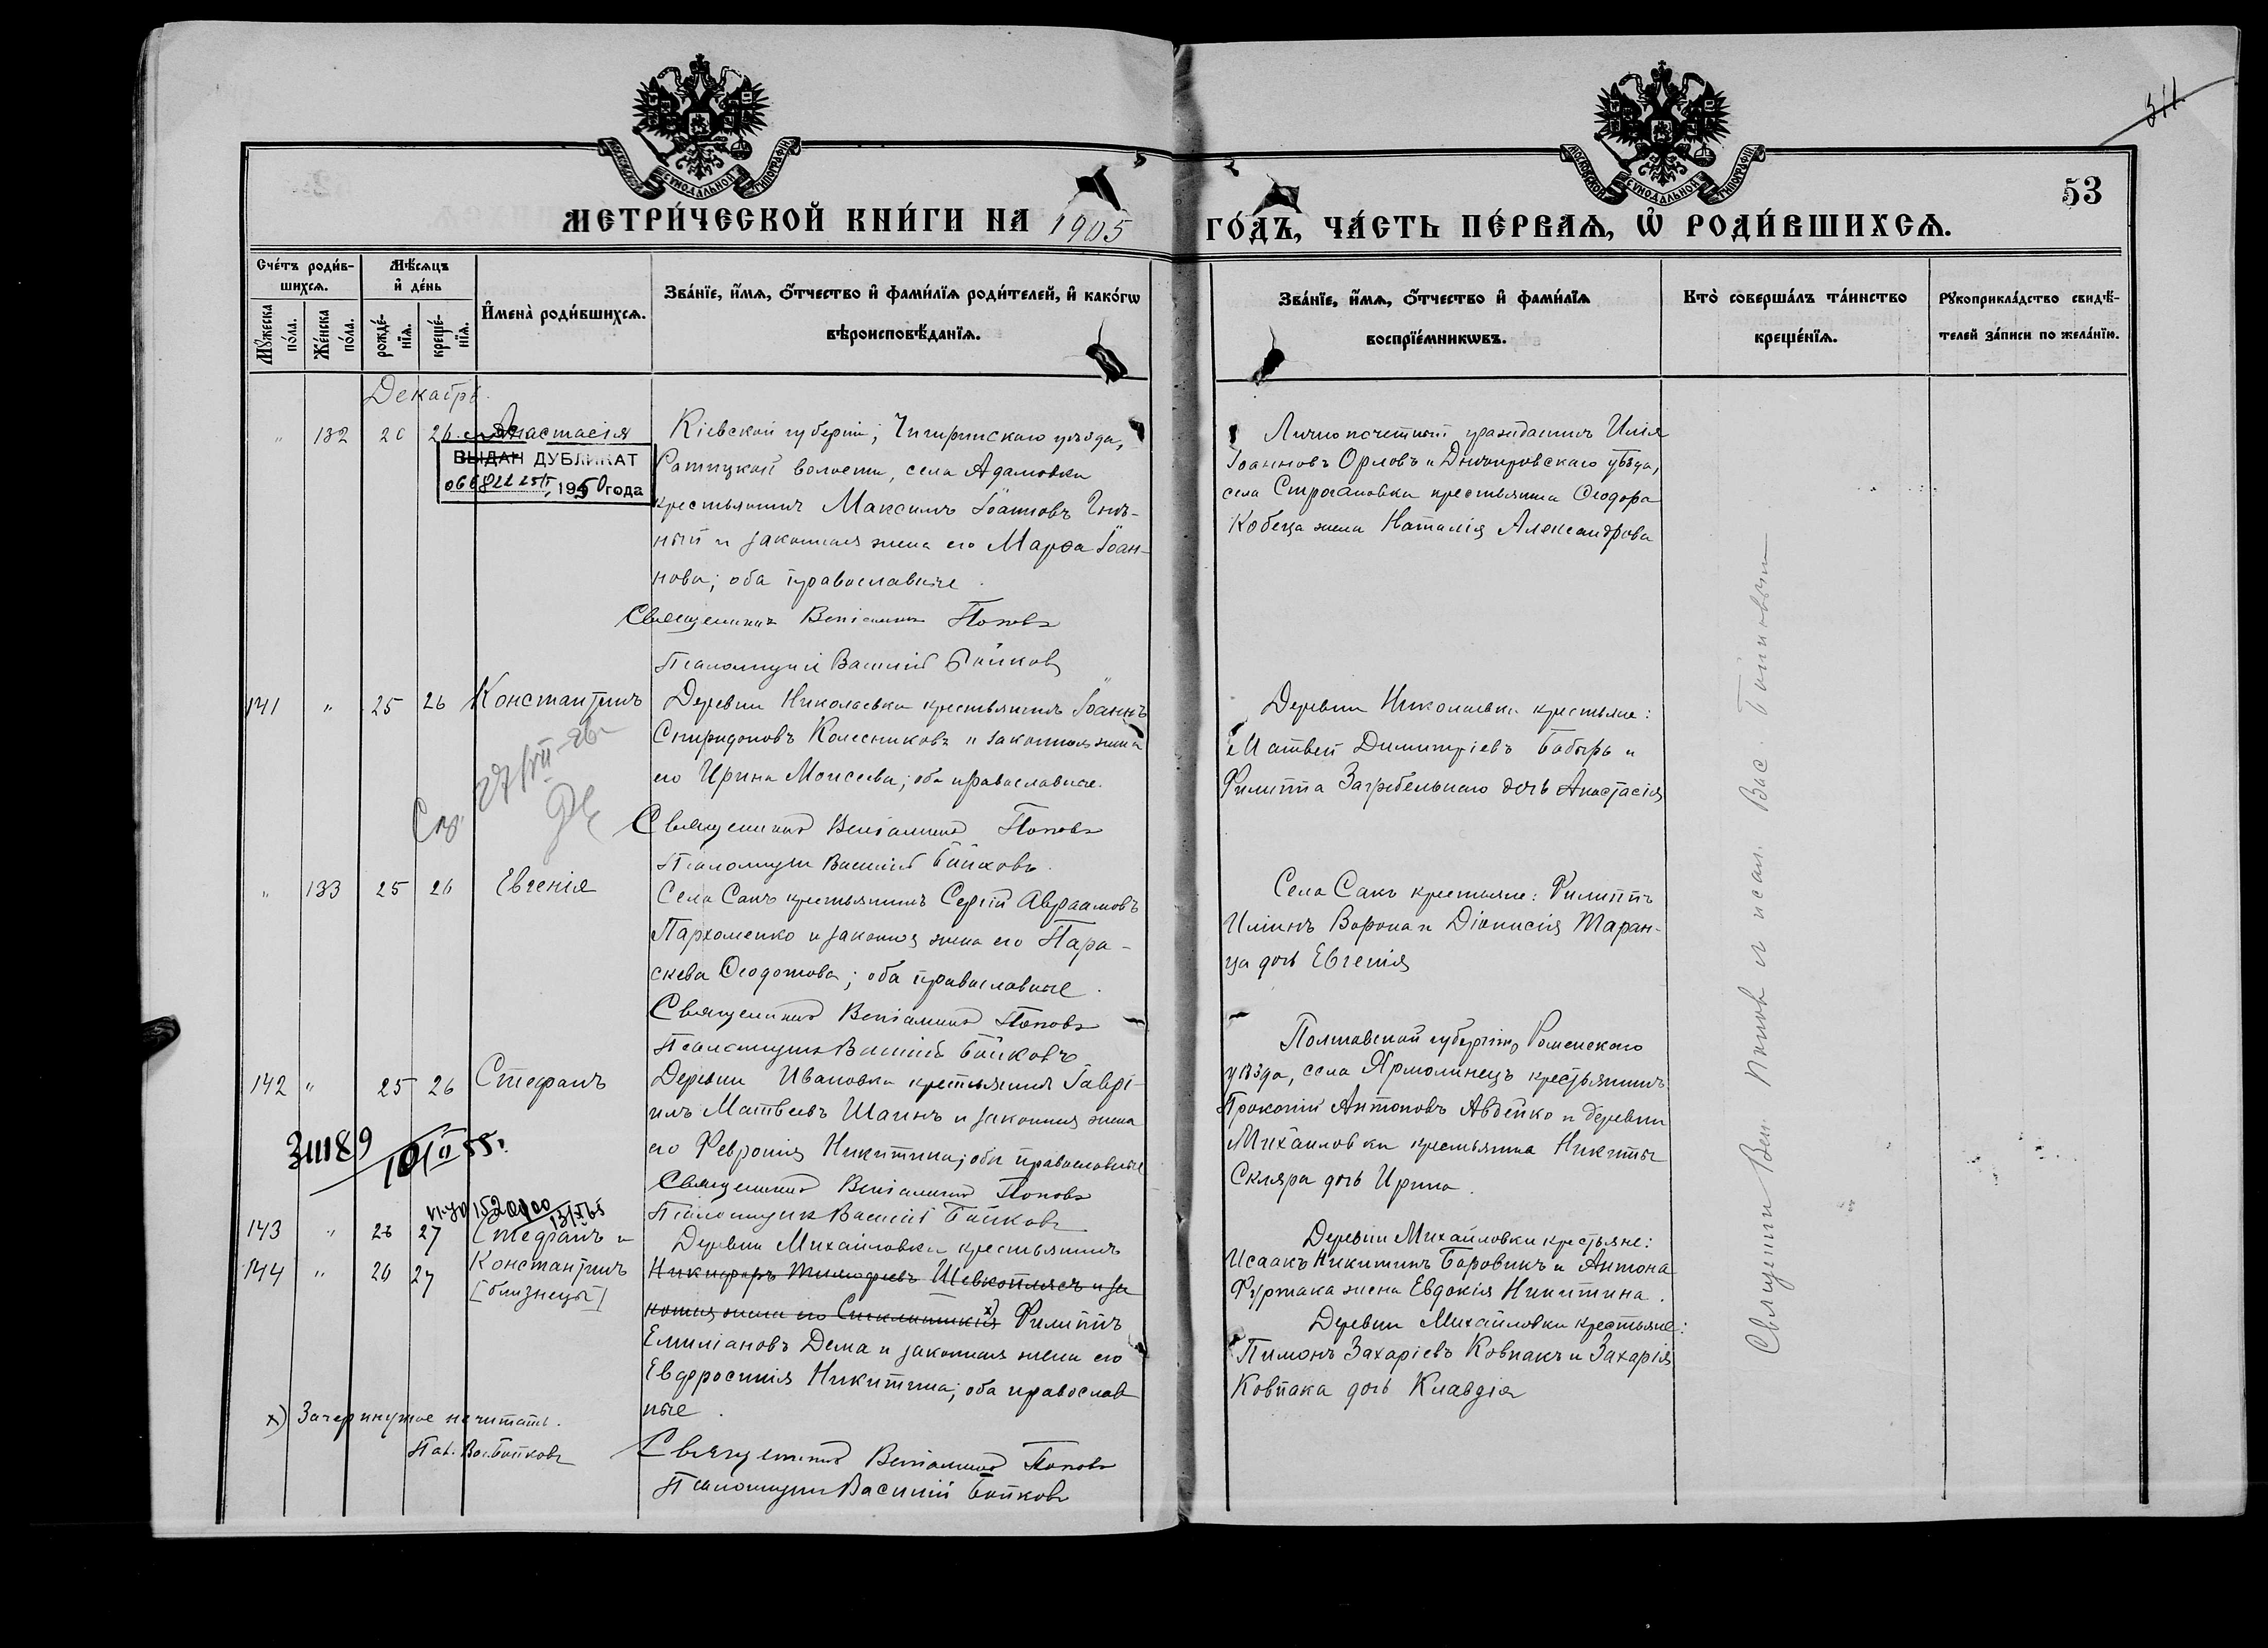 311
МОСКОВСКОЙ СУНОДАЛЬНОЙ ТИПОГРАФІИ
МОСКОВСКОЙ СУНОДАЛЬНОЙ ТИПОГРАФІИ
53
МЕТРИ́ЧЕСКОЙ КНИ́ГИ НА 1905 ГО́ДЪ, ЧА́СТЬ ПЕ́РВАѦ, Ѡ҆ РОДИ́ВШИХСѦ.
Сче́тъ роди́в-
шихсѧ.
Мꙋ́жеска
по́ла.
Же́нска
по́ла.
Мѣ́сѧцъ
и҆ де́нь
рожде́-
нїѧ.
креще́-
нїѧ.
И҆мена̀ роди́вшихсѧ.
Зва́нїе, и҆́мѧ, ѻ҆́тчество и҆ фами́лїѧ роди́телей, и҆ како́гѡ
вѣроисповѣ́данїѧ.
Зва́нїе, и҆́мѧ, ѻ҆́тчество и҆ фами́лїѧ
воспрїе́мникѡвъ.
Кто̀ соверша́лъ та́инство
креще́нїѧ.
Рꙋкоприкла́дство свидѣ́-
телей за́писи по жела́нїю.
Декабрь.
" 132 20 26 Анастасія
ВЫДАН ДУБЛИКАТ
066822 25/, 1950 года
Кіевской губерніи, Чигиринскаго уѣзда,
волости, села Адамовки
крестьянинъ Максимъ Іоанновъ Гнѣ-
ный и законная жена его Марѳа Іоан-
нова; оба православные.
Священникъ Веніаминъ Поповъ
Псаломщикъ Василій Бойковъ
Лично почетный гражданинъ Илія
Іоанновъ Орловъ и Днѣпровскаго уѣзда,
села Строгановки крестьянина Ѳеодора
Кобеца жена Наталія Александрова
141 " 25 26 Константинъ
Деревни Николаевки крестьянинъ Іоаннъ
Спиридоновъ Колесниковъ и законная жена
его Ирина Моисеева; оба православные.
Священникъ Веніаминъ Поповъ
Псаломщикъ Василій Бойковъ.
Деревни Николаевки крестьяне:
Матвей Димитріевъ Бабырь и
Филиппа Загребельнаго дочь Анастасія
" 133 25 26 Евгенія
Села Сакъ крестьянинъ Сергій Авраамовъ
Пархоменко и законная жена его Пара-
скева Ѳеодотова; оба православные.
Священникъ Веніаминъ Поповъ
Псаломщикъ Василій Бойковъ
Села Сакъ крестьяне: Филиппъ
Иліинъ Ворона и Діонисія Таран-
ца дочь Евгенія
142 " 25 26 Стефанъ
31189
10/II 55г.
Деревни Ивановки крестьянинъ Гаврі-
илъ Матвеевъ Шаинъ и законная жена
его Февронія Никитина; оба православные
Священникъ Веніаминъ Поповъ
Псаломщикъ Василій Бойковъ
Полтавской губерніи, Роменскаго
уѣзда, села Ярмолинецъ крестьянинъ
Прокопій Антоновъ Авдейко и деревни
Михайловки крестьянина Никиты
Скляра дочь Ирина.
143 " 26 27 Стефанъ и
144 " 26 27 Константинъ
[близнецы]
Деревни Михайловки крестьянинъ
Никифоръ Тимофеевъ Шевкоплясъ и за
конная жена его Синклитикія х) Филиппъ
Емиліановъ Дема и законная жена его
Евфросинія Никитина; оба православ
ные.
Священникъ Веніаминъ Поповъ
Псаломщикъ Василій Бойковъ
х) Зачеркнутое не читать.
Псал. Вас. Бойковъ
Деревни Михайловки крестьяне:
Исаакъ Никитинъ Боровикъ и Антона
Фуртака жена Евдокія Никитина.
Деревни Михайловки крестьяне:
Пимонъ Захаріевъ Ковпакъ и Захарія
Ковпака дочь Клавдія
Священникъ Вен. Поповъ и псал. Вас. Бойковъ